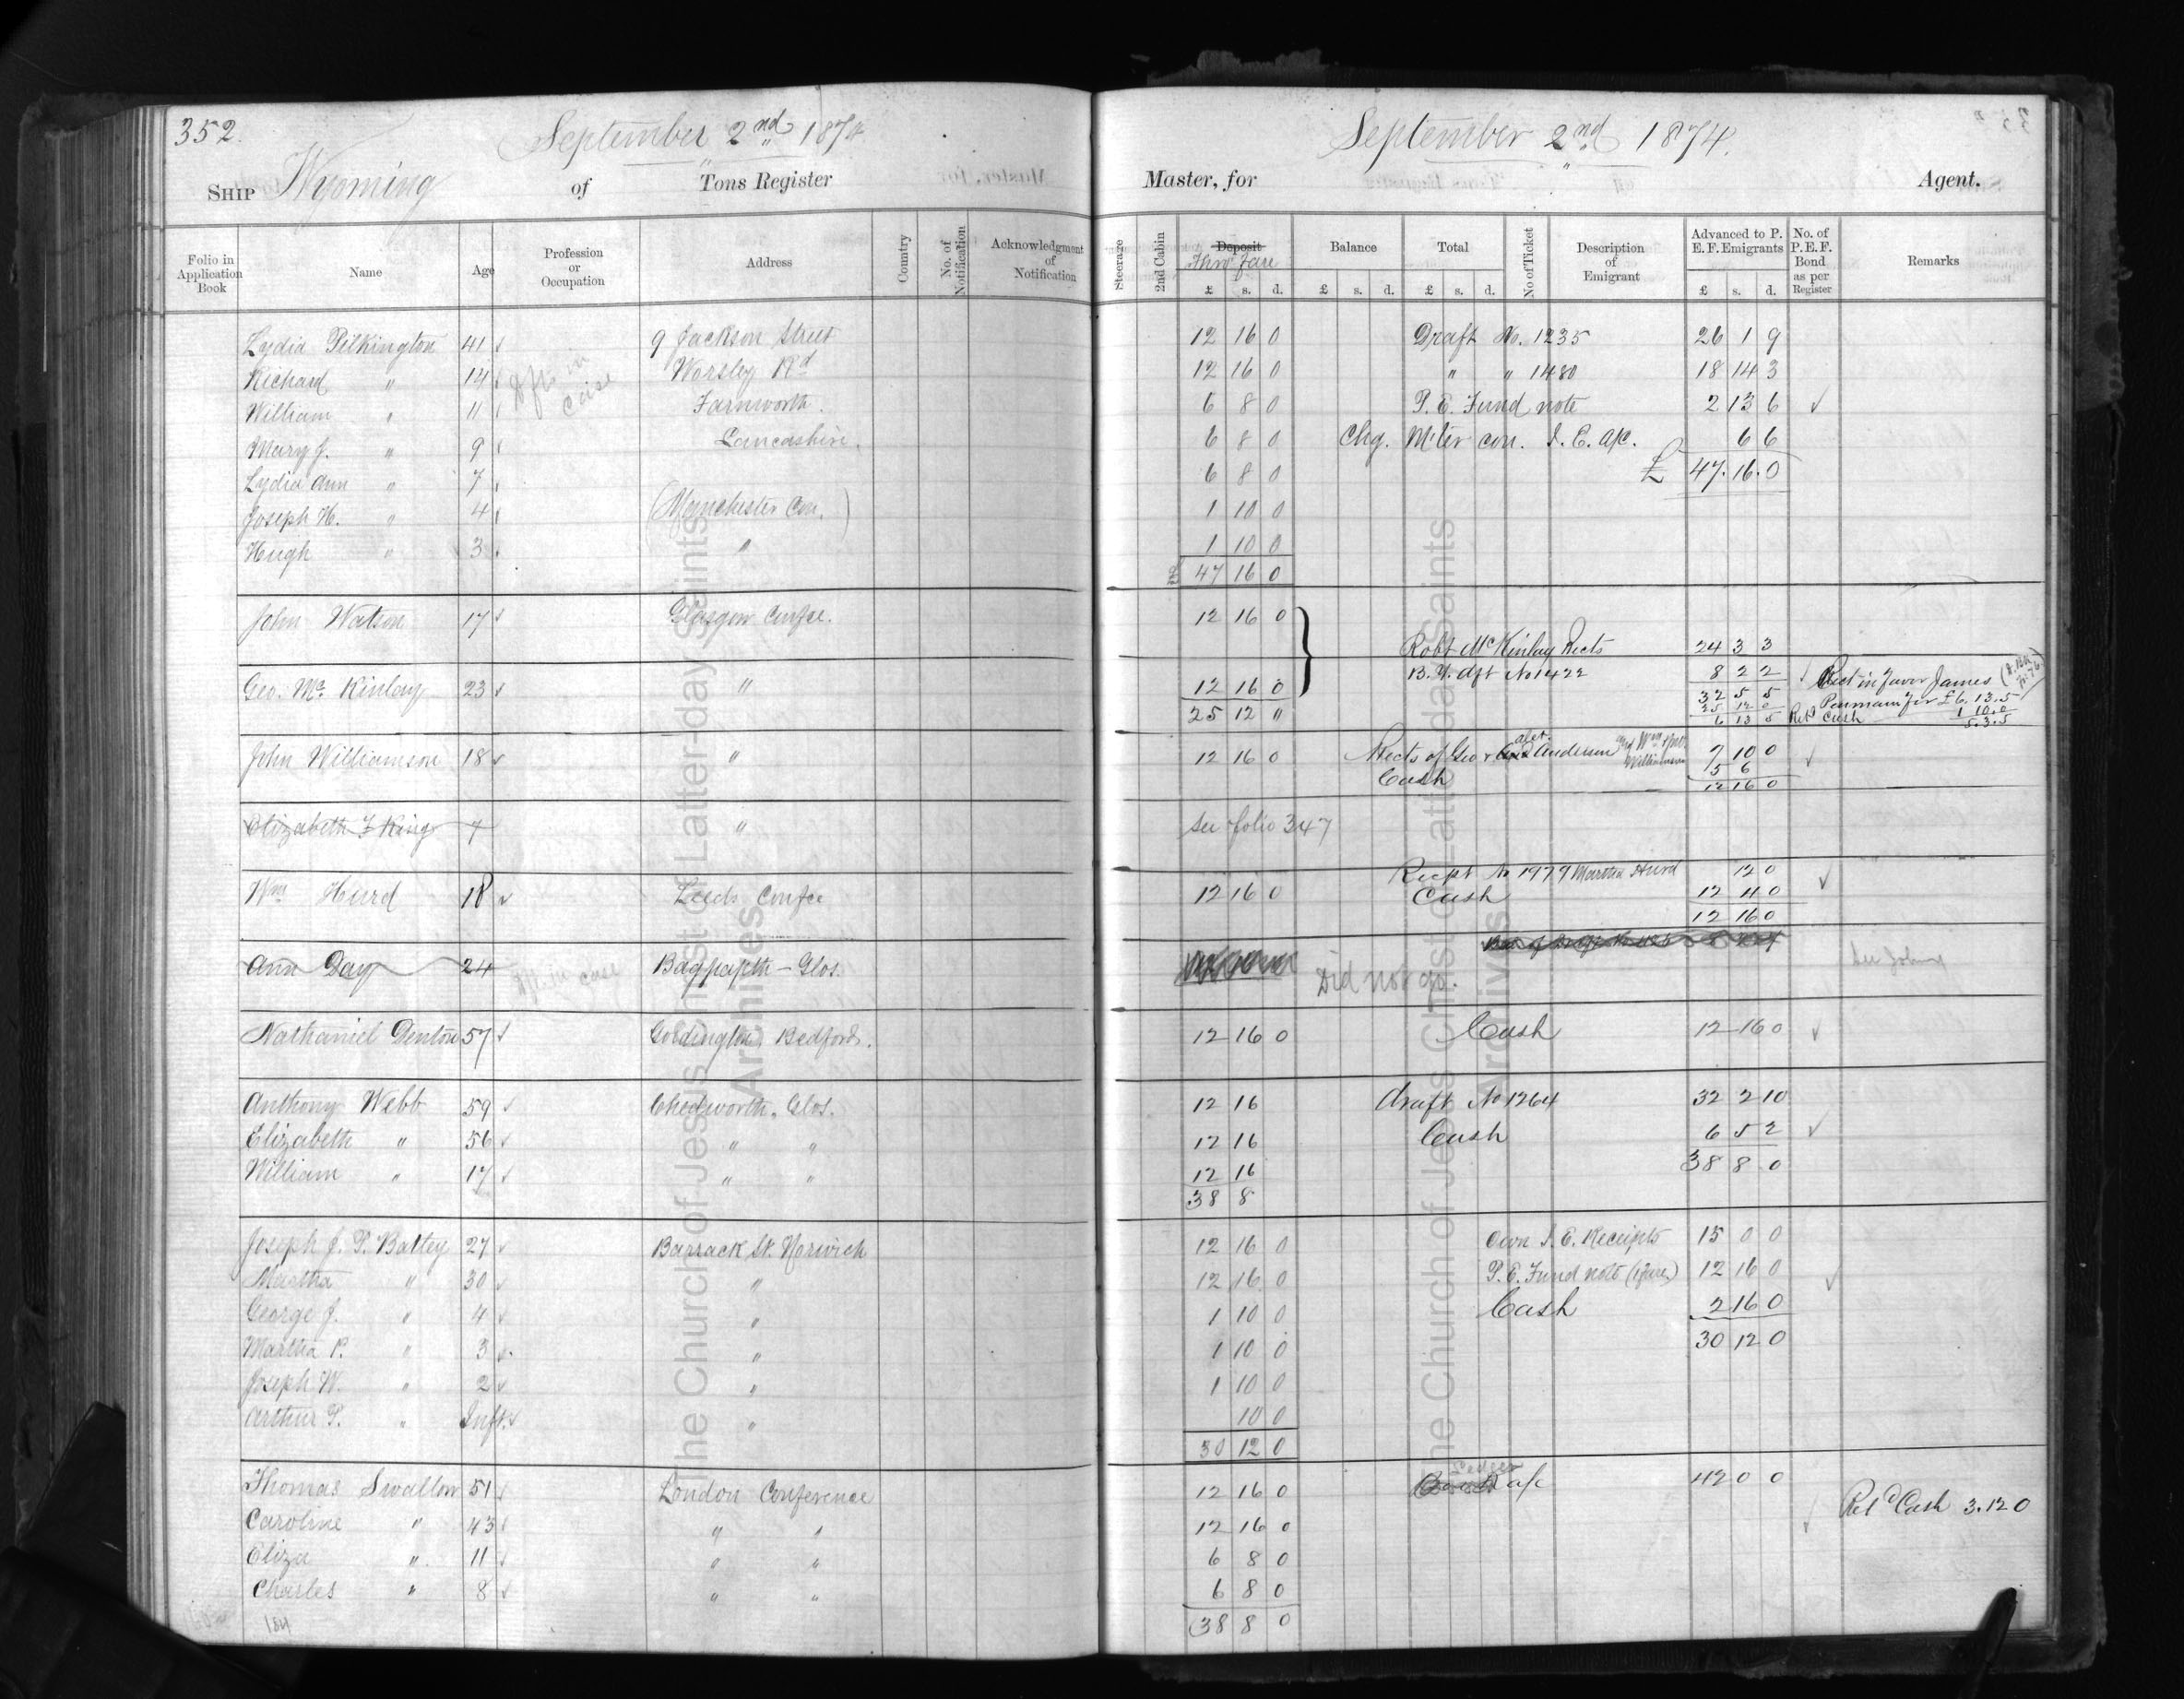 352.
September 2nd 1874
SHIP Wyoming of Tons Register
Folio in Application Book
Name
Age
Profession or Occupation
Address
Country
No. of Notification
Acknowledgment of Notification
Lydia Pilkington 41 9 Jackson Street
Richard " 14 Worsley Rd
William " 11 Farnworth.
Mary J. " 9 Lancashire.
Lydia Ann " 7
Joseph H. " 4 (Manchester Con.)
Hugh " 3 "
Dft in case
John Watson 17 Glasgow Confce.
Geo. Mc Kinlay 23 "
John Williamson 18 "
Elizabeth F King 7 "
Wm Hurd 18 Leeds Confce
Ann Day 24 Dft in case Bagpath - Glos.
Nathaniel Denton 57 Goldington, Bedford.
Anthony Webb 59 Chedworth, Glos.
Elizabeth " 56 " "
William " 17 " "
Joseph J. P. Battey 27 Barrack St. Norwich
Martha " 30 "
George J. " 4 "
Martha P. " 3 "
Joseph W. " 2 "
Arthur P. " Inft. "
Thomas Swallow 51 London Conference
Caroline " 43 " "
Eliza " 11 " "
Charles " 8 " "
184
September 2nd 1874.
Master, for Agent.
Steerage
2nd Cabin
Deposit
Thro' Fare
£ s. d.
Balance
£ s. d.
Total
£ s. d.
No of Ticket
Description of Emigrant
Advanced to P. E. F. Emigrants
£ s. d.
No. of P.E.F. Bond as per Register
Remarks
12 16 0 Draft No. 1235 26 1 9
12 16 0 " " 1480 18 14 3
6 8 0 P. E. Fund note 2 13 6
6 8 0 Chg. M'ter con. I. E. a/c. 6 6
6 8 0 £ 47.16.0
1 10 0
1 10 0
47 16 0
12 16 0
Robt McKinlay Rects 24 3 3
12 16 0 B.Y. dft No 1422 8 2 2 Rect in favor James
25 12 " 32 5 5 Penman for £6.13.5
25 12 0 1 10.0
6 13 5 Retd Cash 5.3.5
12 16 0 Rects of Geo & Alex. Anderson and Wm Williamson 7 10 0
Cash 5 6
12 16 0
See folio 347
Recpt No 1979 Martha Hurd 12 0
12 16 0 Cash 12 4 0
12 16 0
Did not go.
12 16 0 Cash 12 16 0
12 16 Draft No 1264 32 2 10
12 16 Cash 6 5 2
12 16 38 8 0
38 8
12 16 0 Own I. E. Receipts 15 0 0
12 16 0 P. E. Fund note (1 fare) 12 16 0
1 10 0 Cash 2 16 0
1 10 0 30 12 0
1 10 0
10 0
30 12 0
12 16 0 Ledger a/c 42 0 0
12 16 0 Retd Cash 3.12 0
6 8 0
6 8 0
38 8 0
The Church of Jesus Christ of Latter-day Saints
Archives
The Church of Jesus Christ of Latter-day Saints
Archives